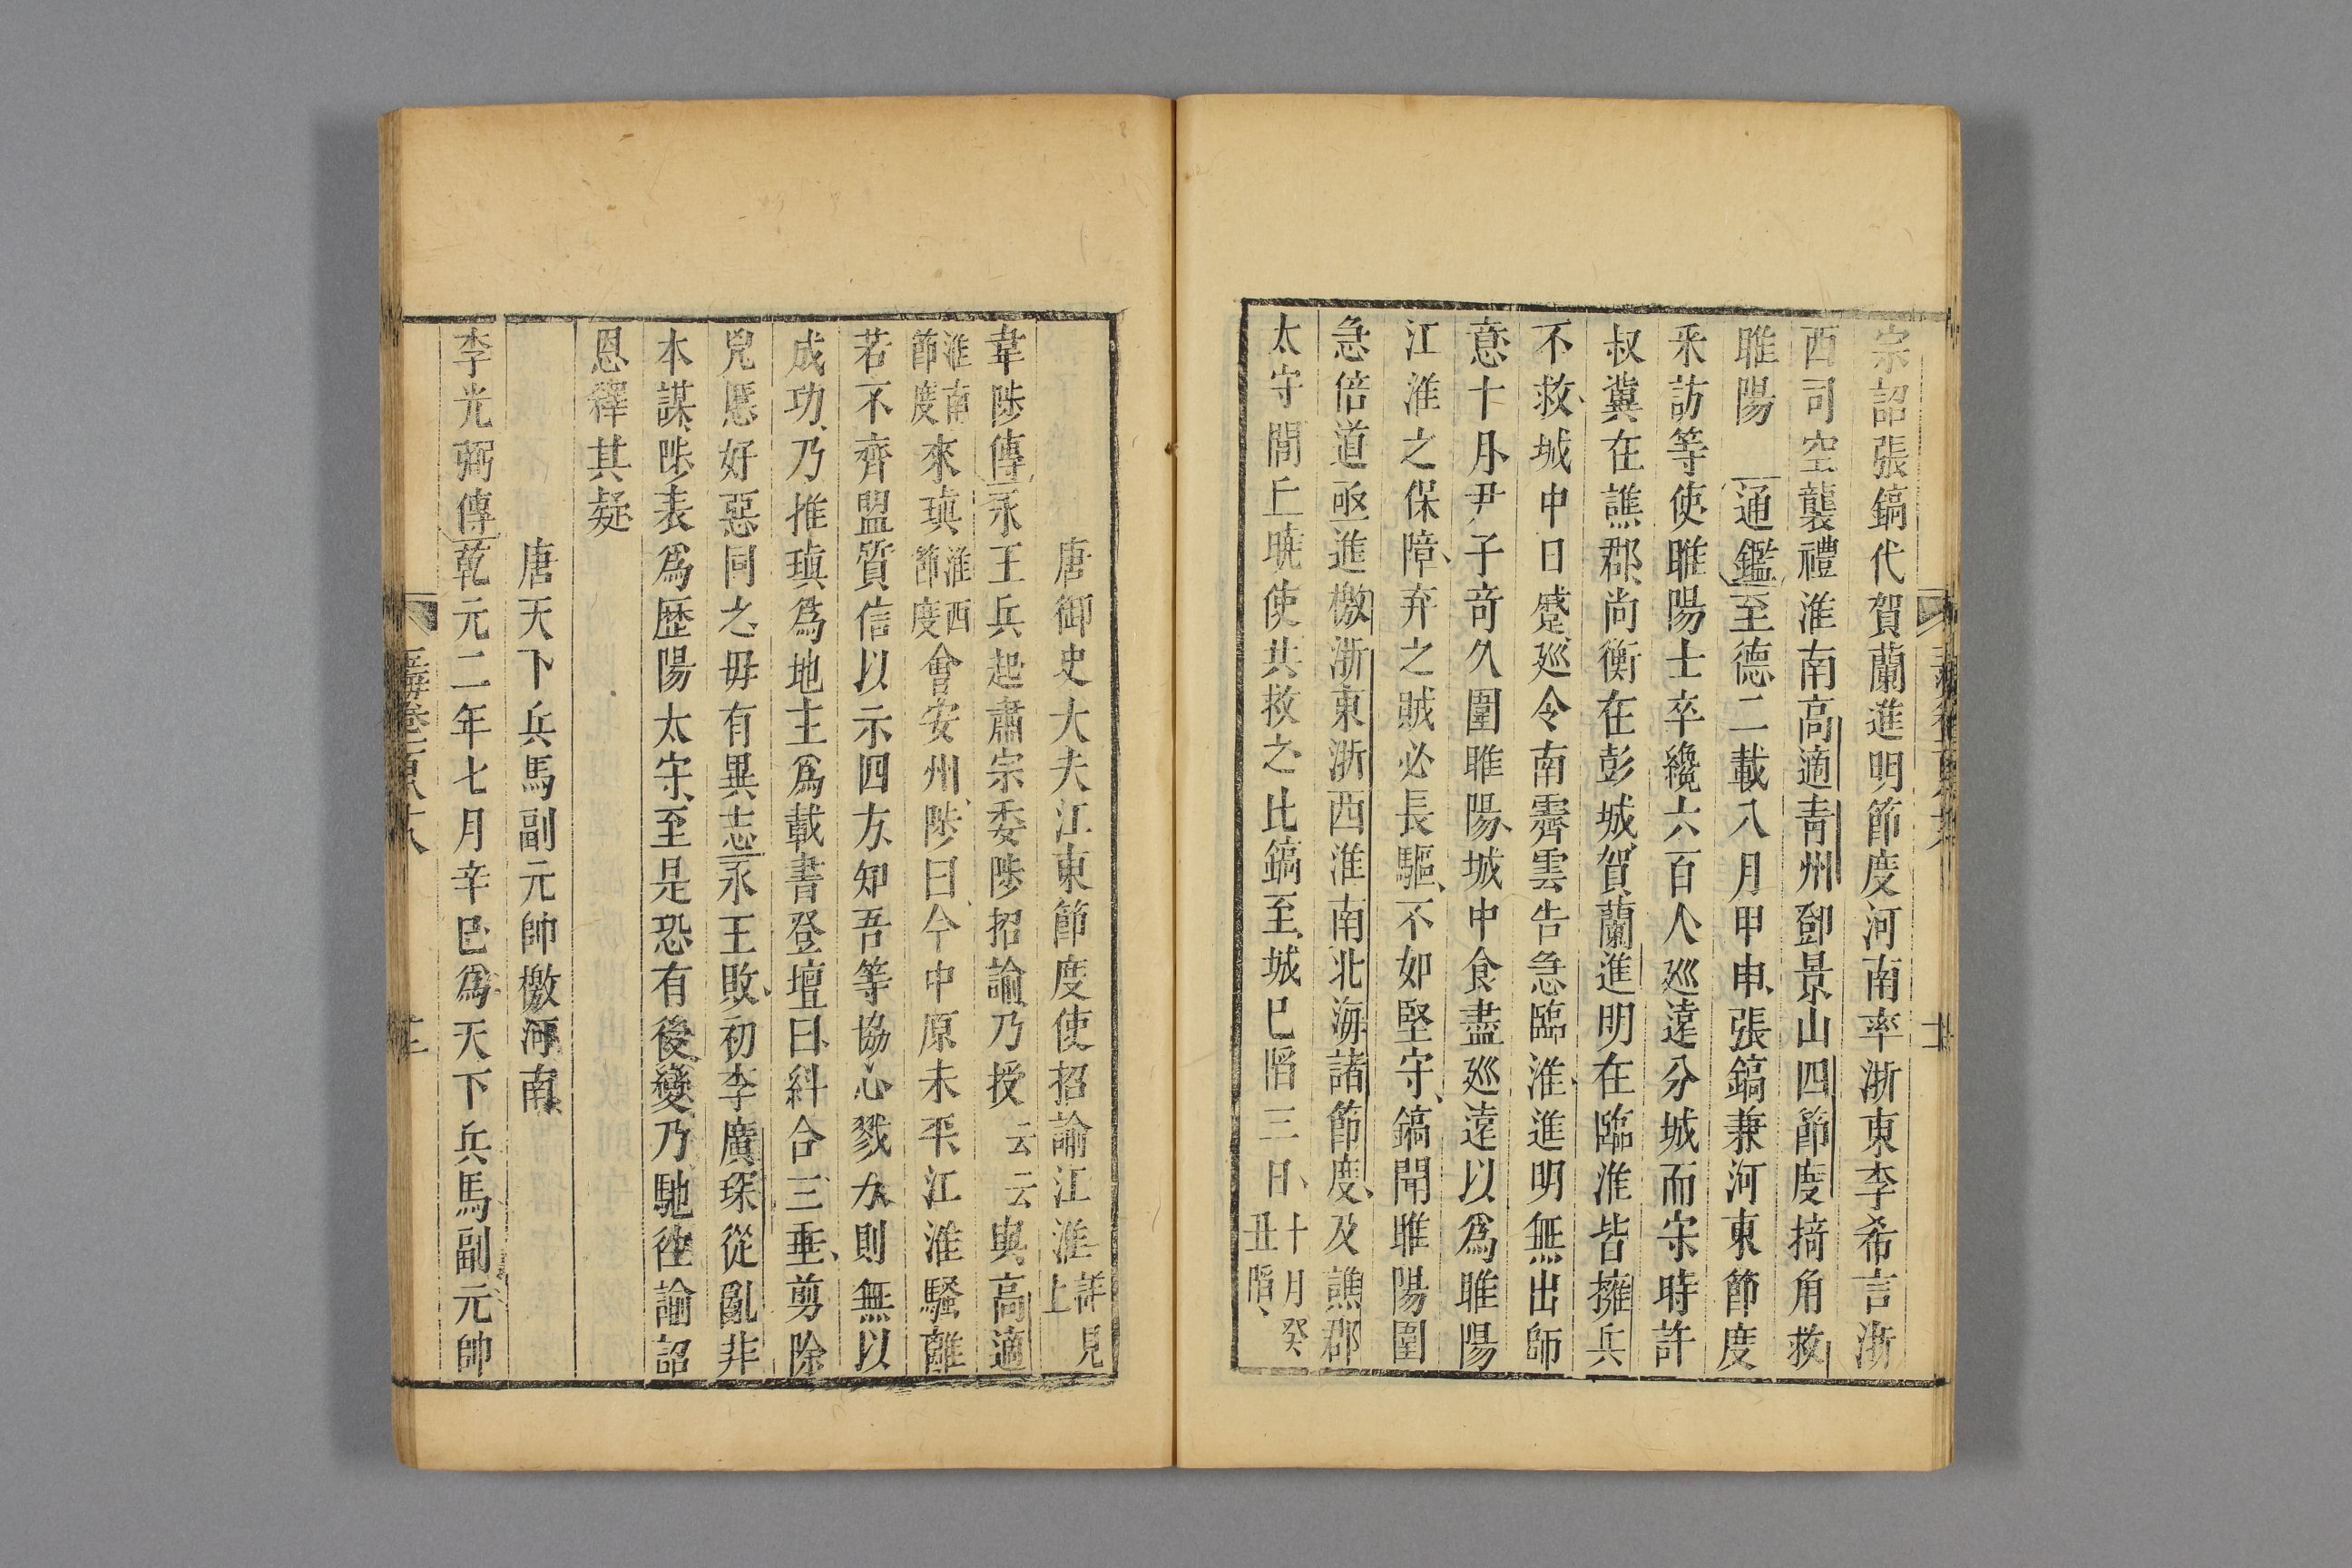 宗詔張鎬代賀蘭進明節度河南率浙東李希言浙
西司空襲禮淮南高適青州鄧景山四節度掎角救
睢陽　通鑑至德二載八月甲申張鎬兼河東節度
采訪等使睢陽士卒纔六百人巡遠分城而守時許
叔冀在譙郡尚衡在彭城賀蘭進明在臨淮皆擁兵
不救城中日蹙巡令南霽雲告急臨淮進明無出師
意十月尹子竒久圍睢陽城中食盡巡遠以爲睢陽
江淮之保障弃之賊必長驅不如堅守鎬聞睢陽圍
急倍道亟進檄浙東浙西淮南北海諸節度及譙郡
太守閭丘曉使共救之比鎬至城巳䧟三日十月癸丑䧟
唐御史大夫江東節度使招諭江淮詳見上
韋陟傳永王兵起肅宗委陟招諭乃授云云與高適
淮南節度來瑱淮西節度會安州陟曰今中原未平江淮騷離
若不齊盟質信以示四方知吾等協心戮力則無以
成功乃推瑱爲地主爲載書登壇曰糾合三垂剪除
兇慝好惡同之毋有異志永王敗初李廣琛從亂非
本謀陟表爲歷陽太守至是恐有後變乃馳徃諭詔
恩釋其疑
唐天下兵馬副元帥檄河南
李光弼傳乾元二年七月辛巳爲天下兵馬副元帥